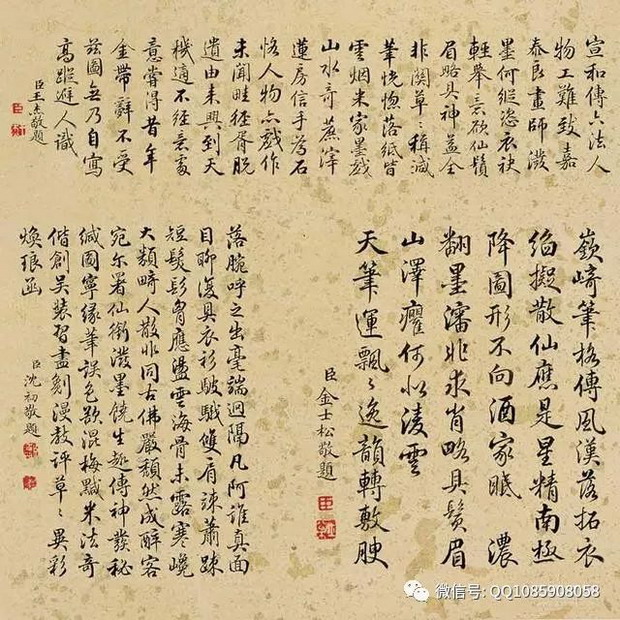 宣和傳六法人
物工難致嘉
泰良畫師潑
墨何縱恣衣袂
輕舉意欲仙鬚
眉略具神益全
非闗草〻稱減
筆恍惚落紙皆
雲烟米家墨戲
山水奇蕉滓
蓮房信手為石
恪人物亦戲作
未聞畦徑胥脫
遺由来興到天
機通不經意處
意嘗得昔年
金帶辭不受
茲圖毋乃自寫
高蹤避人識
臣王杰敬題
嶔崎筆格傳風漢落拓衣
袍擬散仙應是星精南極
降圖形不向酒家眠 濃
翻墨瀋非求肖略具鬚眉
山澤癯何似凌雲
天筆運飄〻逸韻轉敷腴
臣金士松敬題
落腕呼之出毫端迥隔凡阿誰真面
目聊復具衣衫雙肩竦蕭踈
短髮應盪雲海骨未露寒巉
大類畸人散非同古佛嚴頹然成醉客
宛尔署仙銜潑墨饒生趣傳神發秘
緘圖寧緣筆誤色欲混梅黬米法奇
偕創吳裝習盡劖漫教評草〻異彩
煥琅函
臣沈初敬題
微信号: QQ1085908058